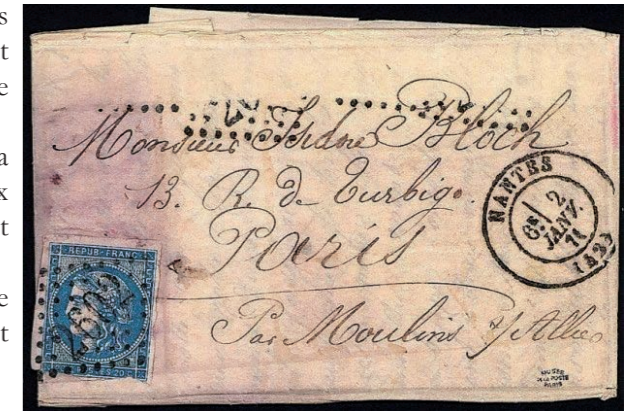 s
t
e
a
x
t
e
t
Monsieur Isidore Bloch
13. R. de Turbigo.
Paris
Par Moulins s/Allier
NANTES
6E
2
JANV.
71
(42)
REPUB. FRANC.
2602
MUSÉE
DE LA POSTE
PARIS